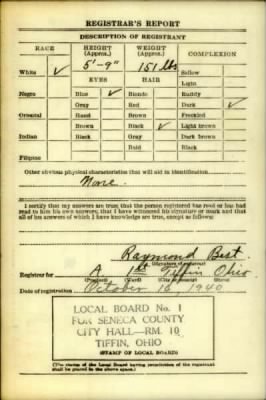 REGISTRAR'S REPORT
DESCRIPTION OF REGISTRANT
RACE HEIGHT (Approx.) WEIGHT (Approx.) COMPLEXION
5'-9" 151 lbs
White ✓ Sallow
EYES HAIR Light
Negro Blue ✓ Blonde Ruddy
Gray Red Dark ✓
Oriental Hazel Brown Freckled
Brown Black ✓ Light brown
Indian Black Gray Dark brown
Bald Black
Filipino
Other obvious physical characteristics that will aid in identification
None.
I certify that my answers are true; that the person registered has read or has had
read to him his own answers; that I have witnessed his signature or mark and that
all of his answers of which I have knowledge are true, except as follows:
Raymond Best
(Signature of registrar)
Registrar for A 1st Tiffin Ohio.
(Precinct) (Ward) (City or county) (State)
Date of registration October 16, 1940
LOCAL BOARD No. 1
FOR SENECA COUNTY
CITY HALL—RM. 10
TIFFIN, OHIO
(STAMP OF LOCAL BOARD)
(The stamp of the Local Board having jurisdiction of the registrant
shall be placed in the above space.)